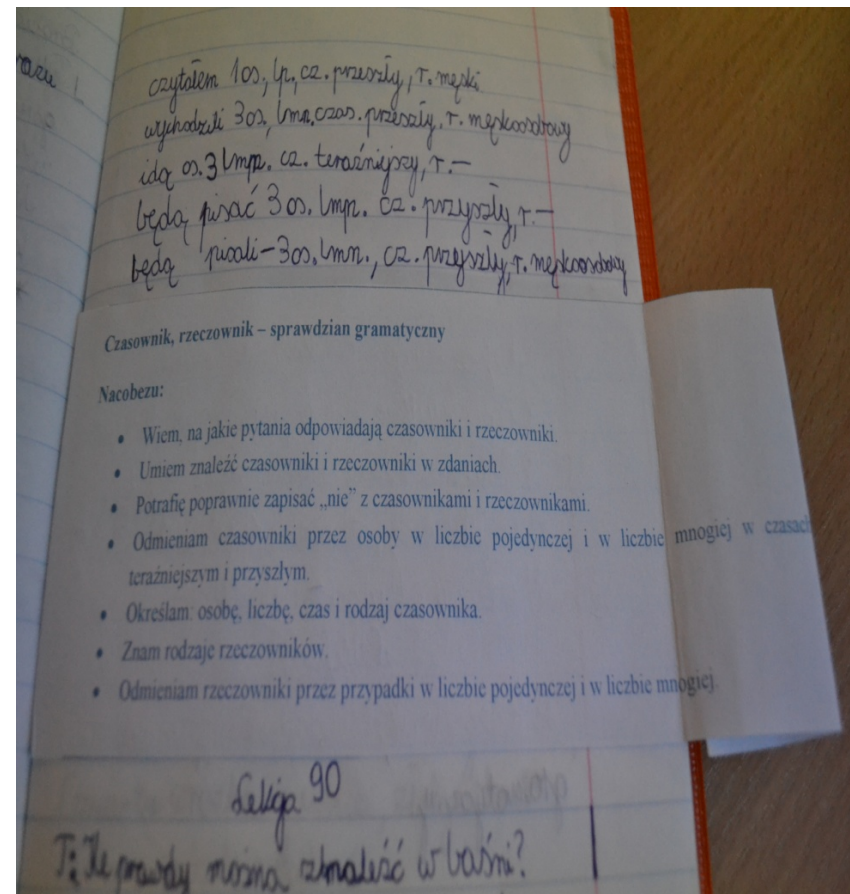 racu
czytałem 1os., lp., cz. przeszły, r. męski
wychodzili 3os, lmn, czas. przeszły, r. męskoosobowy
idą os. 3 lmn. cz. teraźniejszy, r. –
będą pisać 3 os. lmn. cz. przyszły, r –
będą pisali – 3os. lmn., cz. przyszły, r. męskoosobowy
Czasownik, rzeczownik – sprawdzian gramatyczny
Nacobezu:
• Wiem, na jakie pytania odpowiadają czasowniki i rzeczowniki.
• Umiem znaleźć czasowniki i rzeczowniki w zdaniach.
• Potrafię poprawnie zapisać „nie” z czasownikami i rzeczownikami.
• Odmieniam czasowniki przez osoby w liczbie pojedynczej i w liczbie mnogiej w czasach
teraźniejszym i przyszłym.
• Określam: osobę, liczbę, czas i rodzaj czasownika.
• Znam rodzaje rzeczowników.
• Odmieniam rzeczowniki przez przypadki w liczbie pojedynczej i w liczbie mnogiej.
Lekcja 90
T: Ile prawdy można znaleźć w baśni?